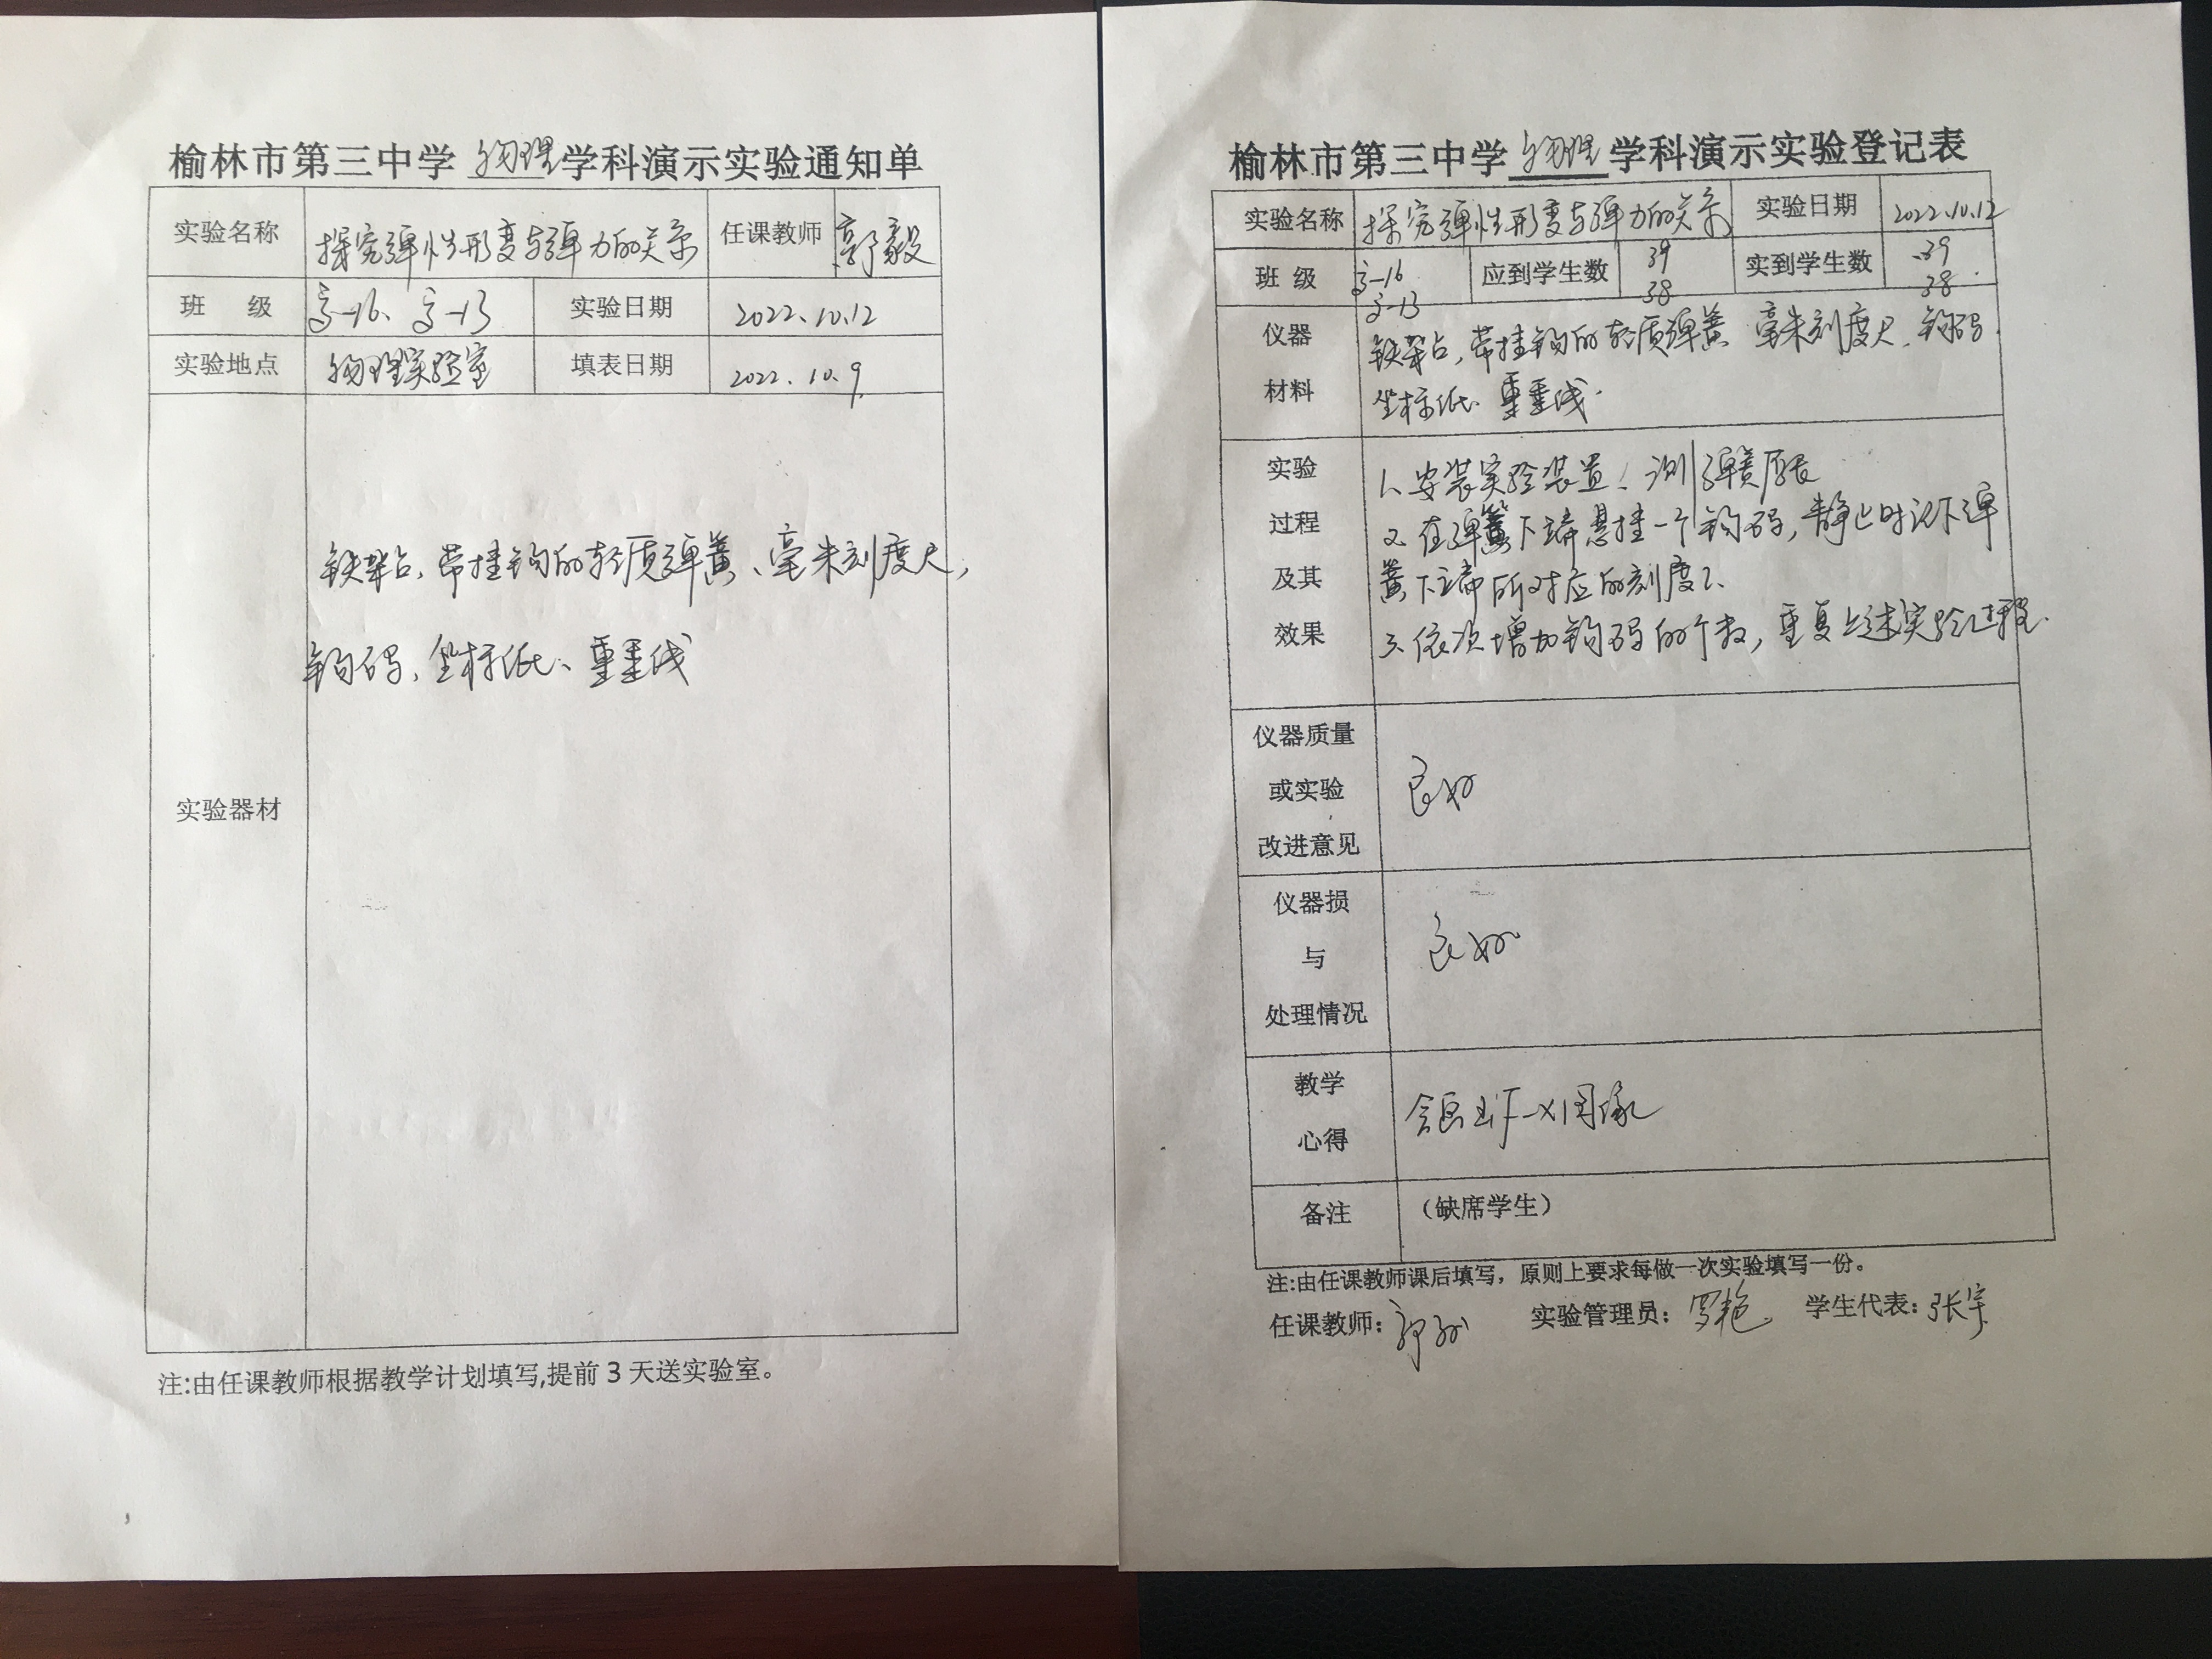 榆林市第三中学 物理 学科演示实验通知单
实验名称 探究弹性形变与弹力的关系 任课教师 郭毅
班 级 高一16、高一13 实验日期 2022.10.12
实验地点 物理实验室 填表日期 2022.10.9
实验器材
铁架台,带挂钩的轻质弹簧、毫米刻度尺,
钩码,坐标纸、重垂线
注:由任课教师根据教学计划填写,提前 3 天送实验室。
榆林市第三中学 物理 学科演示实验登记表
实验名称 探究弹性形变与弹力的关系 实验日期 2022.10.12
班 级 高一16 应到学生数 39 实到学生数 39
高一13 38 38
仪器
材料
铁架台,带挂钩的轻质弹簧 毫米刻度尺、钩码
坐标纸、重垂线
实验
过程
及其
效果
1、安装实验装置、测弹簧原长
2、在弹簧下端悬挂一个钩码,静止时记下弹
簧下端所对应的刻度L
3、依次增加钩码的个数,重复上述实验过程.
仪器质量
或实验
改进意见
良好
仪器损
与
处理情况
良好
教学
心得
会画出F-x图像
备注 (缺席学生)
注:由任课教师课后填写,原则上要求每做一次实验填写一份。
任课教师: 实验管理员: 罗艳 学生代表: 张宇